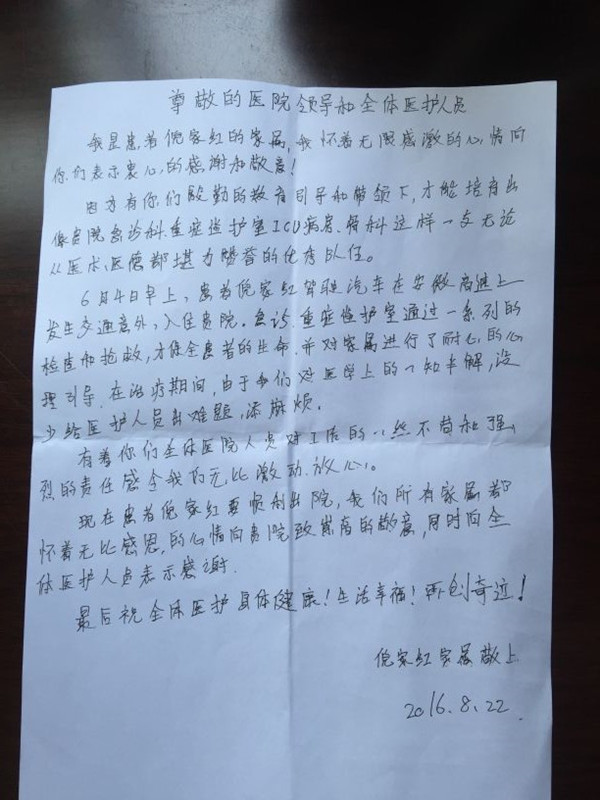 尊敬的医院领导和全体医护人员
我是患者倪家红的家属,我怀着无限感激的心情向
你们表示衷心的感谢和敬意!
因为有你们殷勤的教育引导和带领下,才能培育出
像贵院急诊科.重症监护室ICU病房、骨科这样一支无论
从医术、医德都堪为赞誉的优秀队伍。
6月4日早上,患者倪家红驾驶汽车在安徽高速上
发生交通意外,入住贵院。急诊.重症监护室通过一系列的
检查和抢救,才保全患者的生命.并对家属进行了耐心的心
理引导.在治疗期间,由于我们对医学上的一知半解,没
少给医护人员出难题,添麻烦。
有着你们全体医院人员对工作的一丝不苟和强
烈的责任感令我们无比激动.放心。
现在患者倪家红要顺利出院,我们所有家属都
怀着无比感恩的心情向贵院致崇高的敬意,同时向全
体医护人员表示感谢.
最后祝全体医护身体健康!生活幸福!再创奇迹!
倪家红家属敬上
2016.8.22.